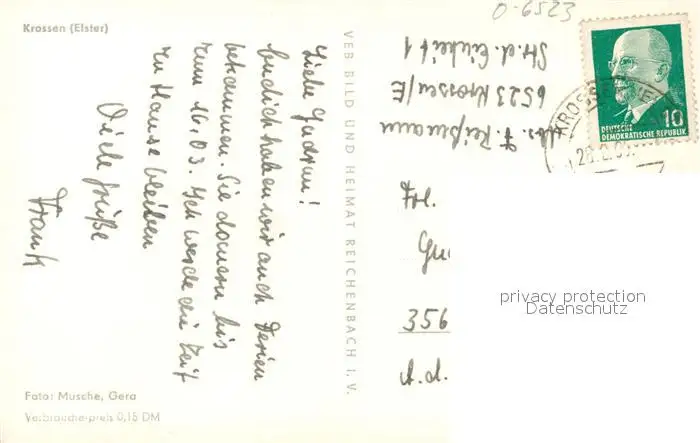 0-6523
Krossen (Elster)
Liebe Gudrun!
Endlich haben wir auch Ferien
bekommen. Sie dauern bis
zum 16.03. Ich werde die Zeit
zu Hause bleiben
Viele Grüße
Frank
Foto: Musche, Gera
Verbraucherpreis 0,15 DM
VEB BILD UND HEIMAT REICHENBACH I. V.
Abs. F. Reißmann
6523 Krossen/E
Str. d. Einheit 1
KROSSEN
10
DEUTSCHE
DEMOKRATISCHE REPUBLIK
Gu
356
privacy protection
Datenschutz